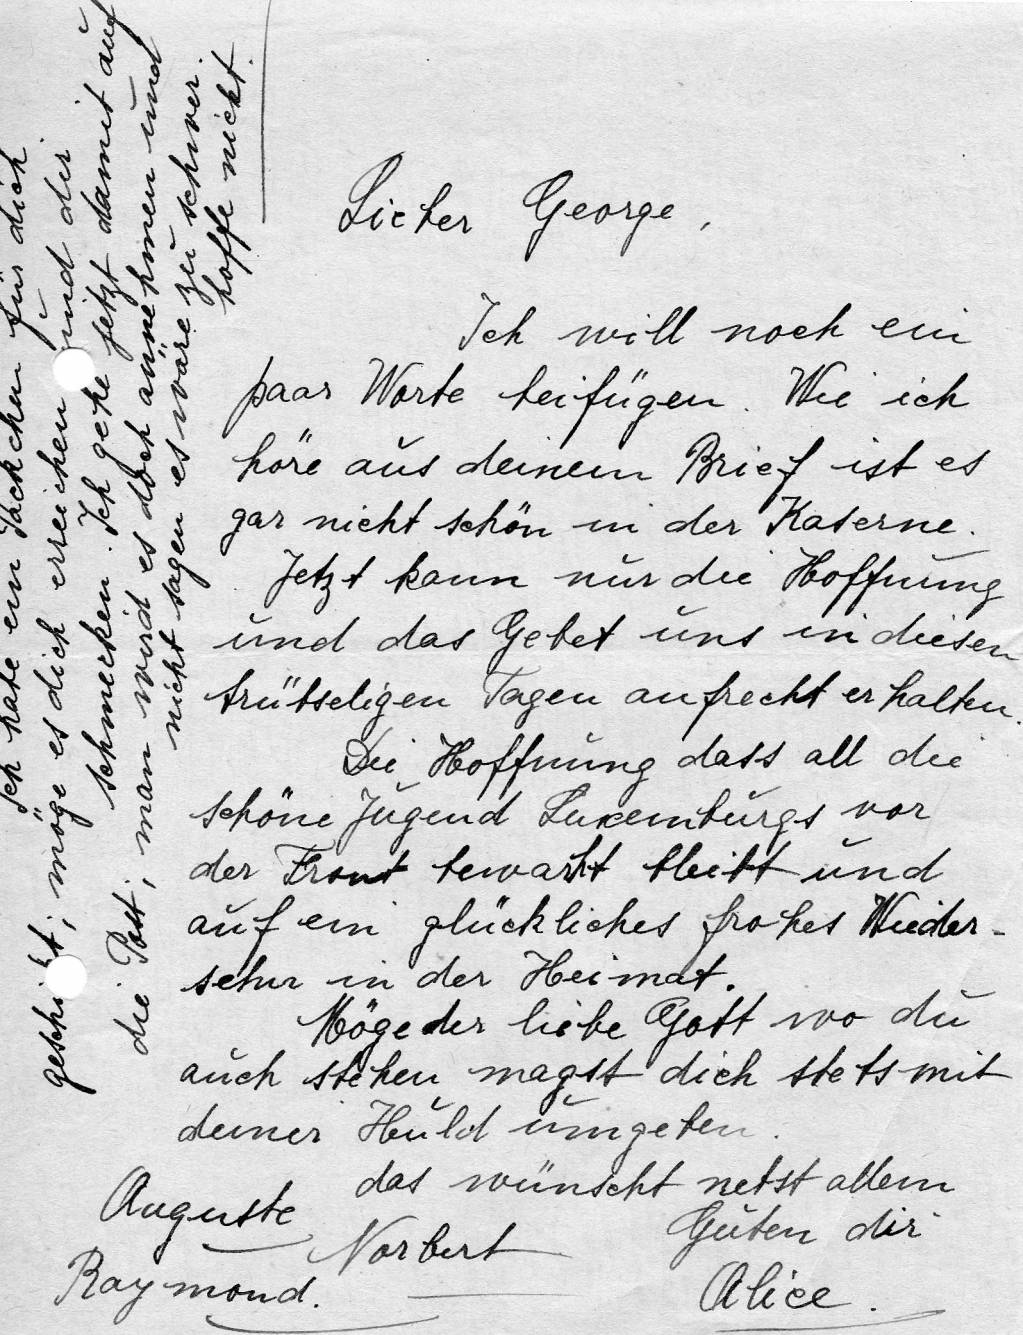 Lieber George,
Ich will noch ein
paar Worte beifügen. Wie ich
höre aus deinem Brief ist es
gar nicht schön in der Kaserne.
Jetzt kann nur die Hoffnung
und das Gebet uns in diesen
trübseligen Tagen aufrecht erhalten.
Die Hoffnung dass all die
schöne Jugend Luxemburgs vor
der Front bewahrt bleibt und
auf ein glückliches frohes Wieder-
sehn in der Heimat.
Möge der liebe Gott wo du
auch stehen magst dich stets mit
deiner Huld umgeben.
das wünscht nebst allem
Guten dir
Alice.
Auguste
Norbert
Raymond.
Ich habe ein Päckchen für dich
geschickt; möge es dich erreichen und dir
schmecken. Ich gehe jetzt damit auf
die Post, man wird es doch annehmen und
nicht sagen es wäre zu schwer.
hoffe nicht.